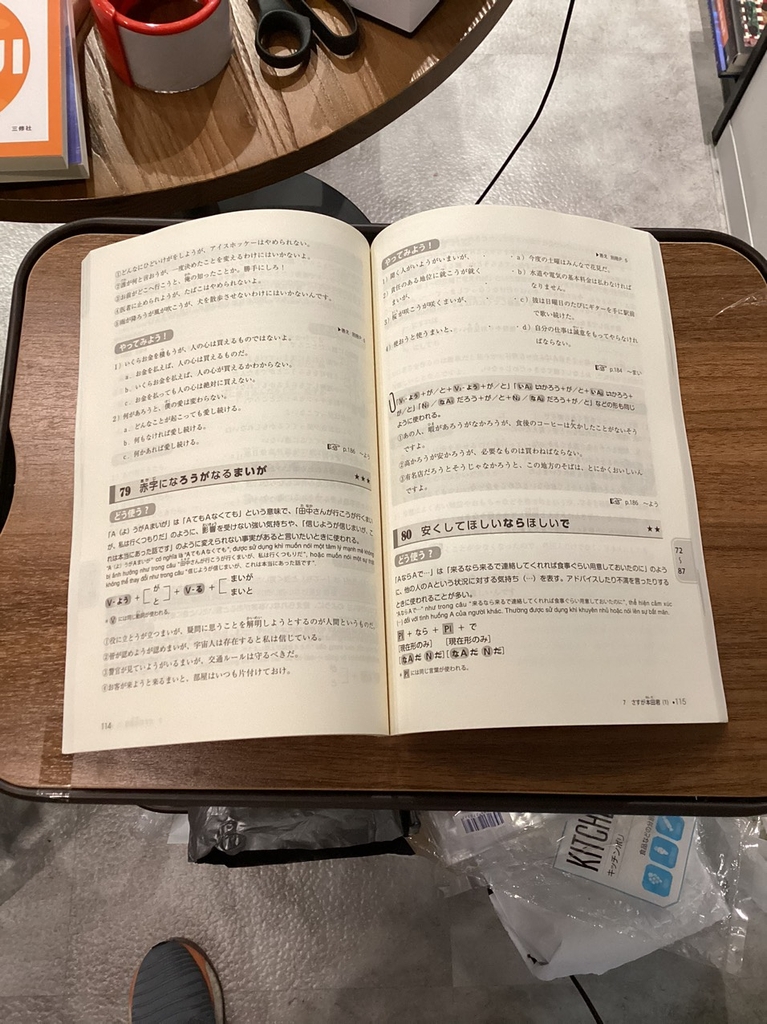 三修社
①どんなにひどいけがをしようが、アイスホッケーはやめられない。
②誰が何と言おうが、一度決めたことを変えるわけにはいかないよ。
③お前がどこへ行こうと、俺の知ったことか。勝手にしろ!
④医者に止められようが、たばこはやめられない。
⑤雨が降ろうが風が吹こうが、犬を散歩させないわけにはいかないんです。
やってみよう!
1) いくらお金を積もうが、人の心は買えるものではないよ。
a. お金を払えば、人の心は買えるものだ。
b. いくらお金を払えば、人の心が買えるかわからない。
c. お金を払っても人の心は絶対に買えない。
2) 何があろうと、僕の愛は変わらない。
a. どんなことが起こっても愛し続ける。
b. 何もなければ愛し続ける。
c. 何かあれば愛し続ける。
p.186 〜よう
79 赤字になろうがなるまいが ★★★
どう使う?
「A(よ)うがAまいが」は「AてもAなくても」という意味で、「田中さんが行こうが行くまい
が、私は行くつもりだ」のように、影響を受けない強い気持ちや、「信じようが信じまいが、こ
れは本当にあった話です」のように変えられない事実があると言いたいときに使われる。
"A(よ)うがAまいが" có nghĩa là "AてもAなくても", được sử dụng khi muốn nói một tâm lý mạnh mẽ không
bị ảnh hưởng như trong câu "田中さんが行こうが行くまいが、私は行くつもりだ", hoặc muốn nói một sự thật
không thể thay đổi như trong câu "信じようが信じまいが、これは本当にあった話です".
V-よう + が と + V-る + が まいが まいと
* Vには同じ動詞が使われる。
①役に立とうが立つまいが、疑問に思うことを解明しようとするのが人間というものだ。
②君が認めようが認めまいが、宇宙人は存在すると私は信じている。
③警官が見ていようがいるまいが、交通ルールは守るべきだ。
④お客が来ようと来るまいと、部屋はいつも片付けておけ。
114
やってみよう!
1) 聞く人がいようがいまいが、
2) 責任のある地位に就こうが就く
まいが、
3) 桜が咲こうが咲くまいが、
4) 使おうと使うまいと、
a) 今度の土曜はみんなで花見だ。
b) 水道や電気の基本料金は払わなければ
なりません。
c) 彼は日曜日のたびにギターを手に駅前
で歌い続けた。
d) 自分の仕事は誠意をもってやらなけれ
ばならない。
p.184 〜まい
「V-よう+が/と+V-よう+が/と」「いAいかろう+が/と+いAいかろう+
が/と」「N/なAだろう+が/と+N/なAだろう+が/と」などの形も同じ
ように使われる。
①あの人、暇があろうがなかろうが、食後のコーヒーは欠かしたことがないそう
ですよ。
②高かろうが安かろうが、必要なものは買わねばならない。
③有名店だろうとそうじゃなかろうと、この地方のそばは、とにかくおいしいん
ですよ。
p.186 〜よう
80 安くしてほしいならほしいで ★★
どう使う?
「AならAで…」は「来るなら来るで連絡してくれれば食事ぐらい用意しておいたのに」のよう
に、他の人のAという状況に対する気持ち(…)を表す。アドバイスしたり不満を言ったりする
ときに使われることが多い。
"AならAで…" như trong câu "来るなら来るで連絡してくれれば食事ぐらい用意しておいたのに", thể hiện cảm xúc
(…) đối với tình huống A của người khác. Thường được sử dụng khi khuyên nhủ hoặc nói lên sự bất mãn.
PI + なら + PI + で
[現在形のみ] [現在形のみ]
[なAだ Nだ] [なAだ Nだ]
* PIには同じ言葉が使われる。
72
〜
87
7 さすが本田君 (1) ●115
KITCHE
キッチンポリ